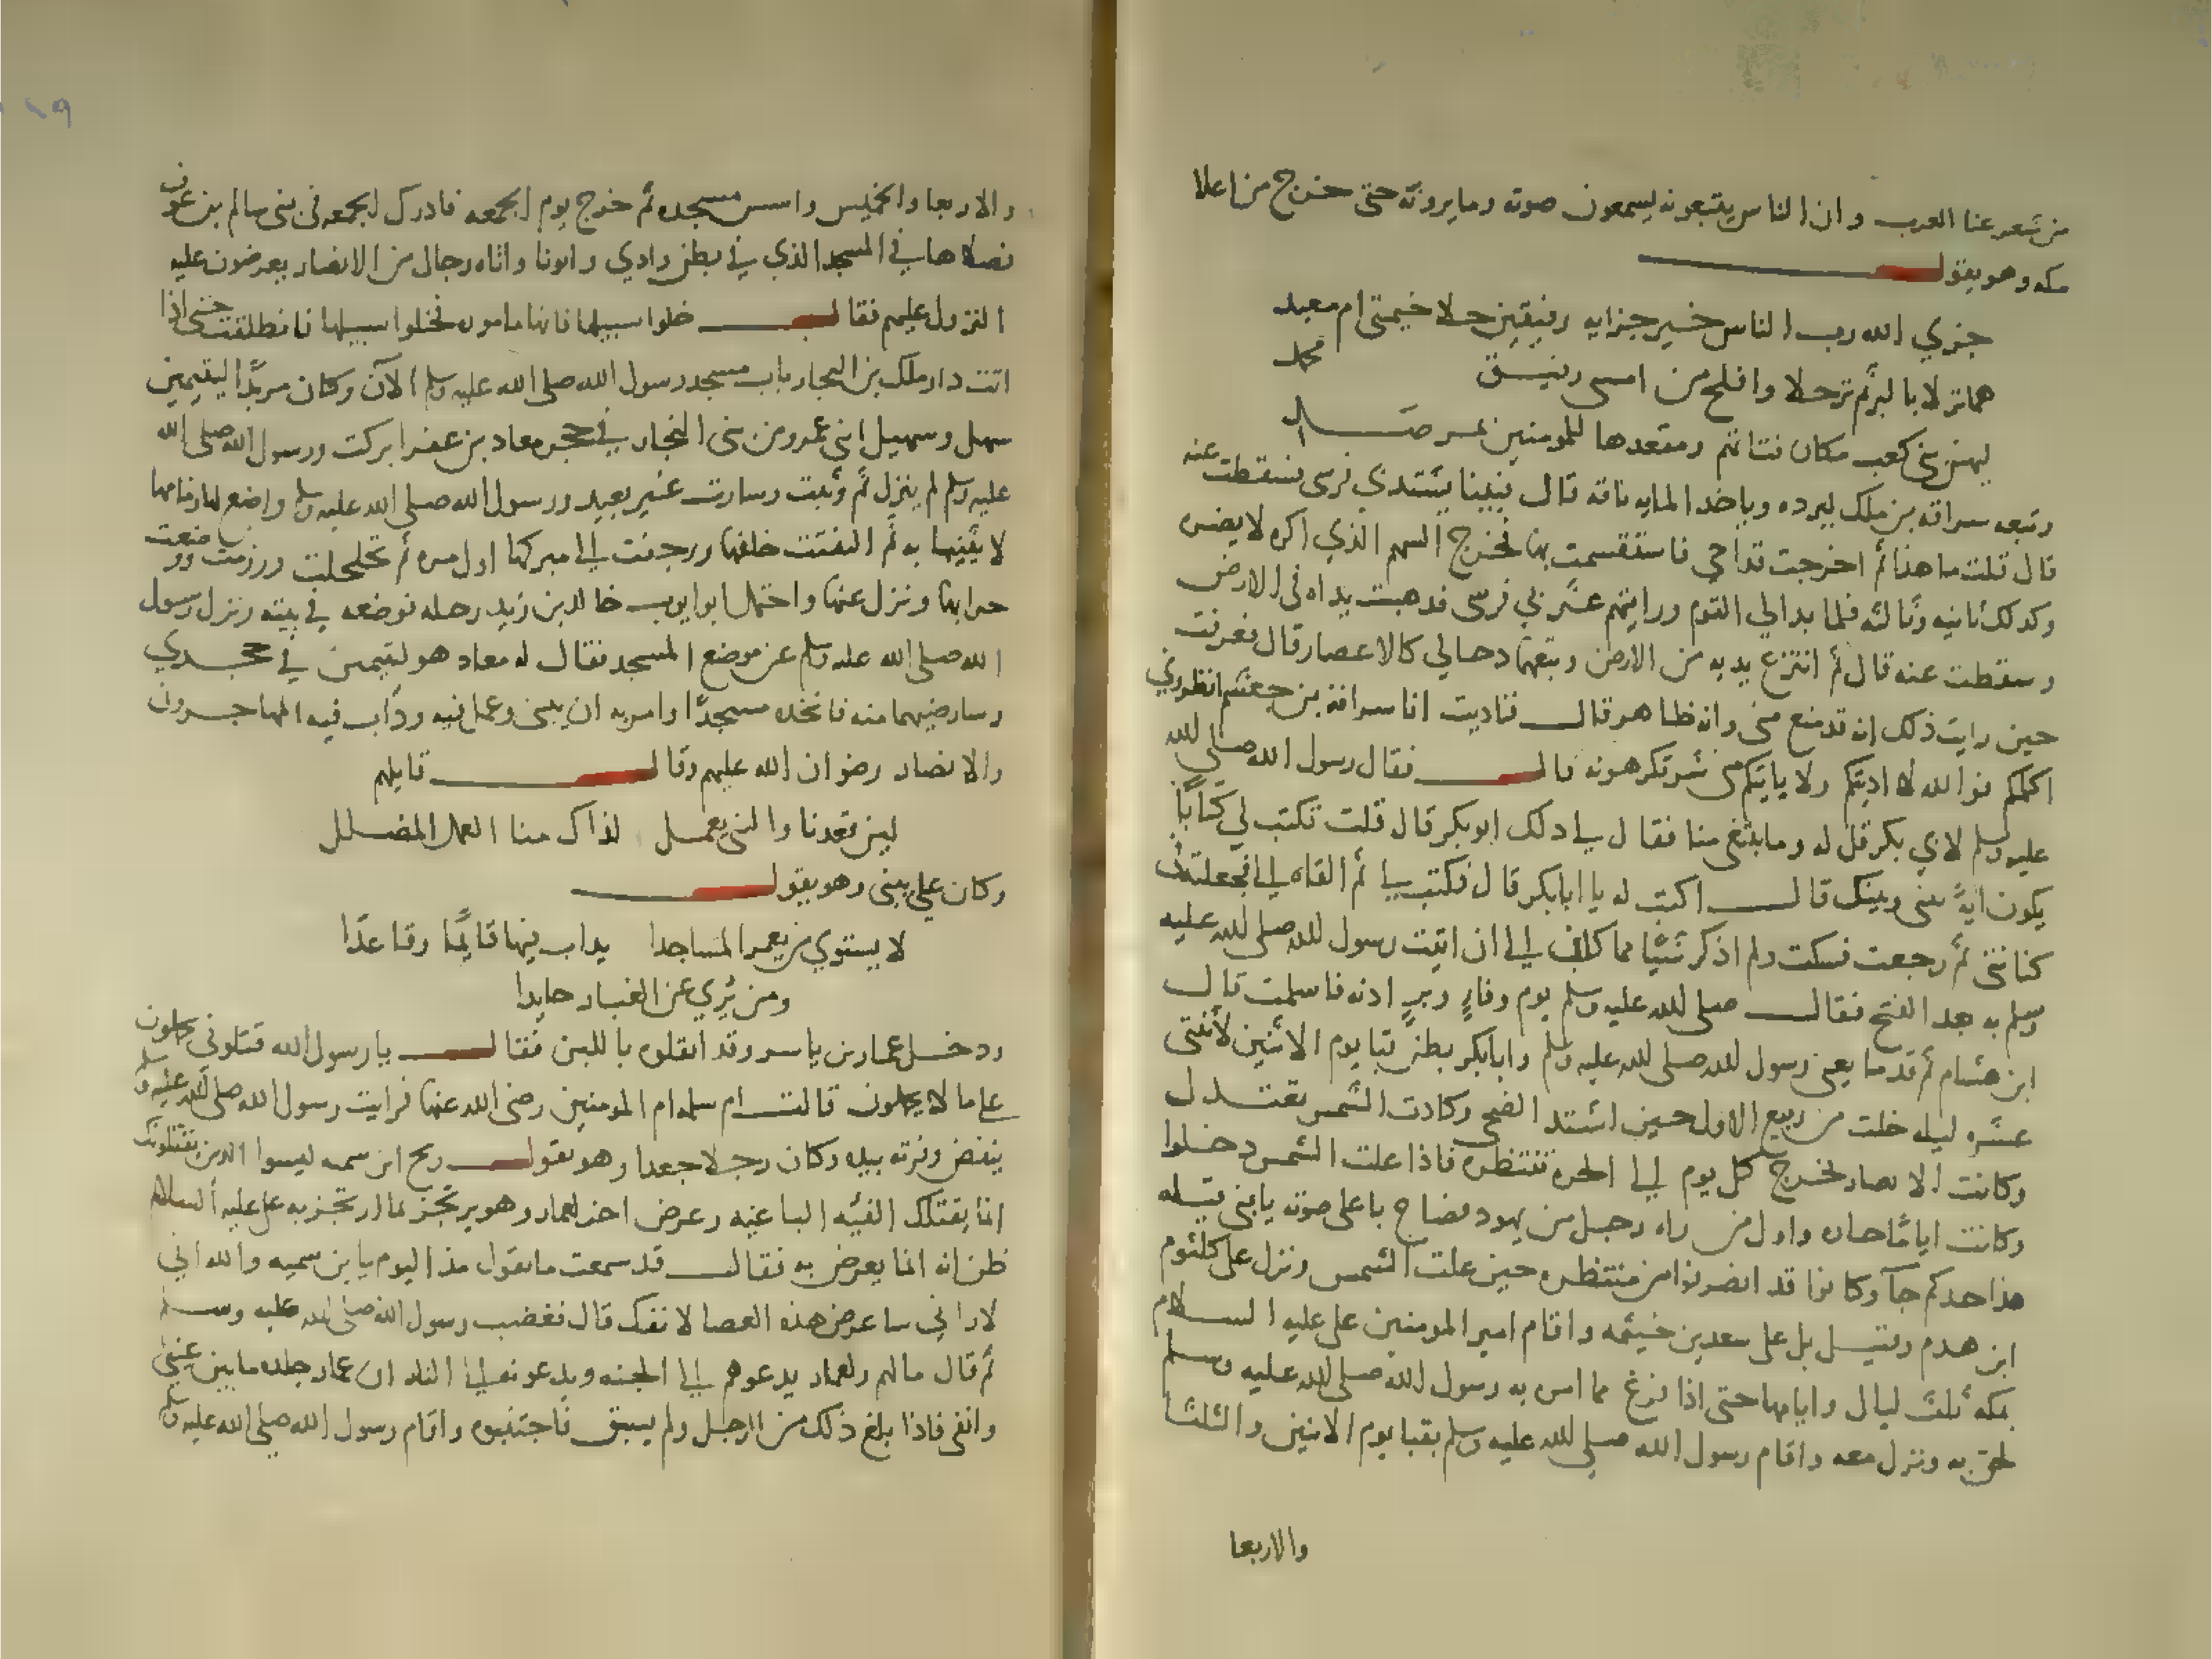 من شعر عنا العرب وان الناس يتبعونه ليسمعون صوته وما يرونه حتى خرج من اعلا
مكه وهو يقول
جزي الله رب الناس خير جزايه رفيقين حلا خيمتي ام معبد
هما نزلا بالبر ثم ترحلا وافلح من امسى رفيق محمد
ليهن بني كعب مكان فتاتهم ومقعدها للمومنين بمرصد
وتبعه سراقه بن ملك ليرده وياخذ المايه ناقه قال فبينا يشتد بي فرسي فسقطت عنه
قال قلت ما هذا ثم اخرجت قداحي فاستقسمت بها فخرج السهم الذي اكره لا يضره
وكذلك ثانيه وثالثه فلما بدا لي القوم ورايتهم عثر بي فرسي فذهبت يداه في الارض
وسقطت عنه قال ثم انتزع يديه من الارض وتبعهما دحالي كالاعصار قال فعرفت
حين رايت ذلك انه قد منع مني وانه ظاهر قال فناديت انا سراقة بن جعشم انظروني
اكلمكم فوالله لا اذيتكم ولا ياتيكم مني شي تكرهونه قال فقال رسول الله صلى الله
عليه وسلم لابي بكر قل له وما يبتغي منا فقال لي ذلك ابو بكر قال قلت تكتب لي كتابا
يكون اية بيني وبينك قال اكتب له يا ابا بكر قال فكتب لي ثم القاه الي فجعلته في
كنانتي ثم رجعت فسكت ولم اذكر شيا مما كان الى ان اتيت رسول الله صلى الله عليه
وسلم به بعد الفتح فقال صلى الله عليه وسلم يوم وفاء وبر ادنه فاسلمت قال
ابن هشام ثم قدما يعني رسول الله صلى الله عليه وسلم وابا بكر بطن قبا يوم الاثنين لاثنتي
عشره ليله خلت من ربيع الاول حين اشتد الضحى وكادت الشمس تعتدل
وكانت الانصار تخرج كل يوم الى الحره تنتظره فاذا علت الشمس دخلوا
وكانت اياما حاره واول من راه رجل من يهود فصاح باعلى صوته يا بني قيله
هذا جدكم جآ وكانوا قد انصرفوا من منتظره حين علت الشمس ونزل على كلثوم
ابن هدم وقيل بل على سعد بن خيثمه واقام امير المومنين علي عليه السلام
بمكه ثلث ليال وايامها حتى اذا فرغ مما امره به رسول الله صلى الله عليه وسلم
لحق به ونزل معه واقام رسول الله صلى الله عليه وسلم بقبا يوم الاثنين والثلثا
والاربعا
والاربعا والخميس واسس مسجده ثم خرج يوم الجمعه فادرك الجمعه في بني سالم بن عوف
فصلاها في المسجد الذي في بطن وادي رانونا واتاه رجال من الانصار يعرضون عليه
النزول عليهم فقال خلوا سبيلها فانها ماموره فخلوا سبيلها فانطلقت حتى اذا
اتت دار ملك بن النجار باب مسجد رسول الله صلى الله عليه وسلم الآن وكان مربدا ليتيمين
سهل وسهيل ابني عمرو من بني النجار في حجر معاد بن عفرا بركت ورسول الله صلى الله
عليه وسلم لم ينزل ثم وثبت وسارت غير بعيد ورسول الله صلى الله عليه وسلم واضع لها زمامها
لا يثنيها به ثم التفتت خلفها ورجعت الى مبركها اول مره ثم تحلحلت ورزمت ووضعت
جرانها ونزل عنها واحتمل ابو ايوب خالد بن زيد رحله فوضعه في بيته ونزل رسول
الله صلى الله عليه وسلم عن موضع المسجد فقال له معاد هو ليتيمين في حجري
وسارضيهما منه فاتخذه مسجدًا وامر به ان يبنى وعمل فيه ودأب فيه المهاجرون
والانصار رضوان الله عليهم وقال قايلهم
لين قعدنا والنبي يعمل لذاك منا العمل المضلل
وكان علي يبني وهو يقول
لا يستوي من يعمر المساجدا يداب فيها قايمًا وقاعدًا
ومن يُري عن الغبار حايدا
ودخل عمار بن ياسر وقد اثقلوه باللبن فقال يا رسول الله قتلوني يحملون
علي ما لا يحملون قالت ام سلمه ام المومنين رضي الله عنها فرايت رسول الله صلى الله عليه وسلم
ينفض وفرته بيده وكان رجلا جعدا وهو يقول ويح ابن سميه ليسوا الذين يقتلونك
انما يقتلك الفئيه الباغيه وعرض اخر لعمار وهو يرتجز بما ارتجز به علي عليه السلام
ظن انه انما يعرض به فقال قد سمعت ما تقول هذا اليوم يا بن سميه والله اني
لاراني ساعرض هذه العصا لانفك قال فغضب رسول الله صلى الله عليه وسلم
ثم قال ما لهم ولعمار يدعوهم الى الجنه ويدعونه الى النار ان عمار جلده ما بين عيني
وانفي فاذا بلغ ذلك من الرجل ولم يسبق فاجتنبوه واقام رسول الله صلى الله عليه وسلم